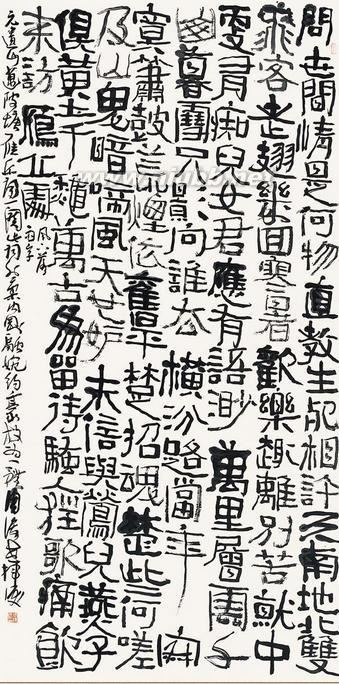 問世間情是何物直教生死相許天南地北雙
飛客老翅幾回寒暑歡樂趣離別苦就中
更有痴兒女君應有語渺萬里層雲千
山暮雪只影向誰去橫汾路當年寂
寞簫鼓荒煙依舊平楚招魂楚些何嗟
及山鬼暗啼風天也妒未信與鶯兒燕子
俱黃土千秋萬古為留待騷人狂歌痛飲
来訪鴈丘處
風下落雨字
元遺山邁陂塘雁丘詞